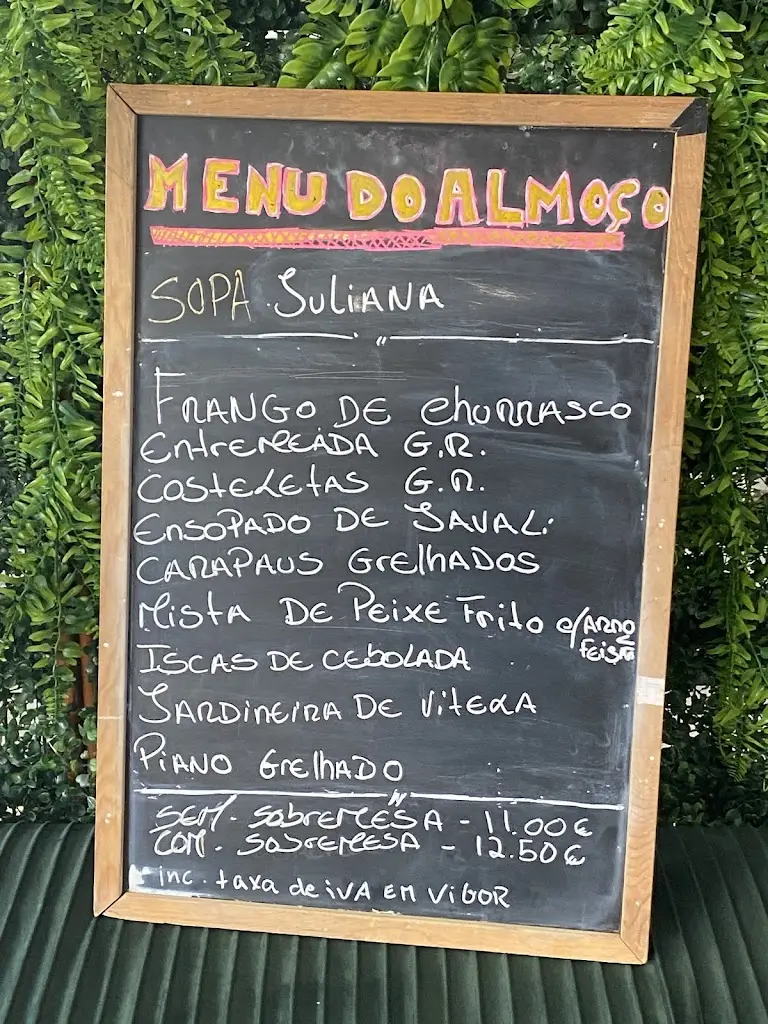 MENU DO ALMOÇO
SOPA JULIANA
FRANGO DE CHURRASCO
ENTREMEADA G.R.
COSTELETAS G.R.
ENSOPADO DE JAVALI
CARAPAUS GRELHADOS
MISTA DE PEIXE FRITO C/ARROZ
FEIJÃO
ISCAS DE CEBOLADA
JARDINEIRA DE VITELA
PIANO GRELHADO
SEM. SOBREMESA - 11.00€
COM. SOBREMESA - 12.50€
inc. taxa de iVA EM VIGOR